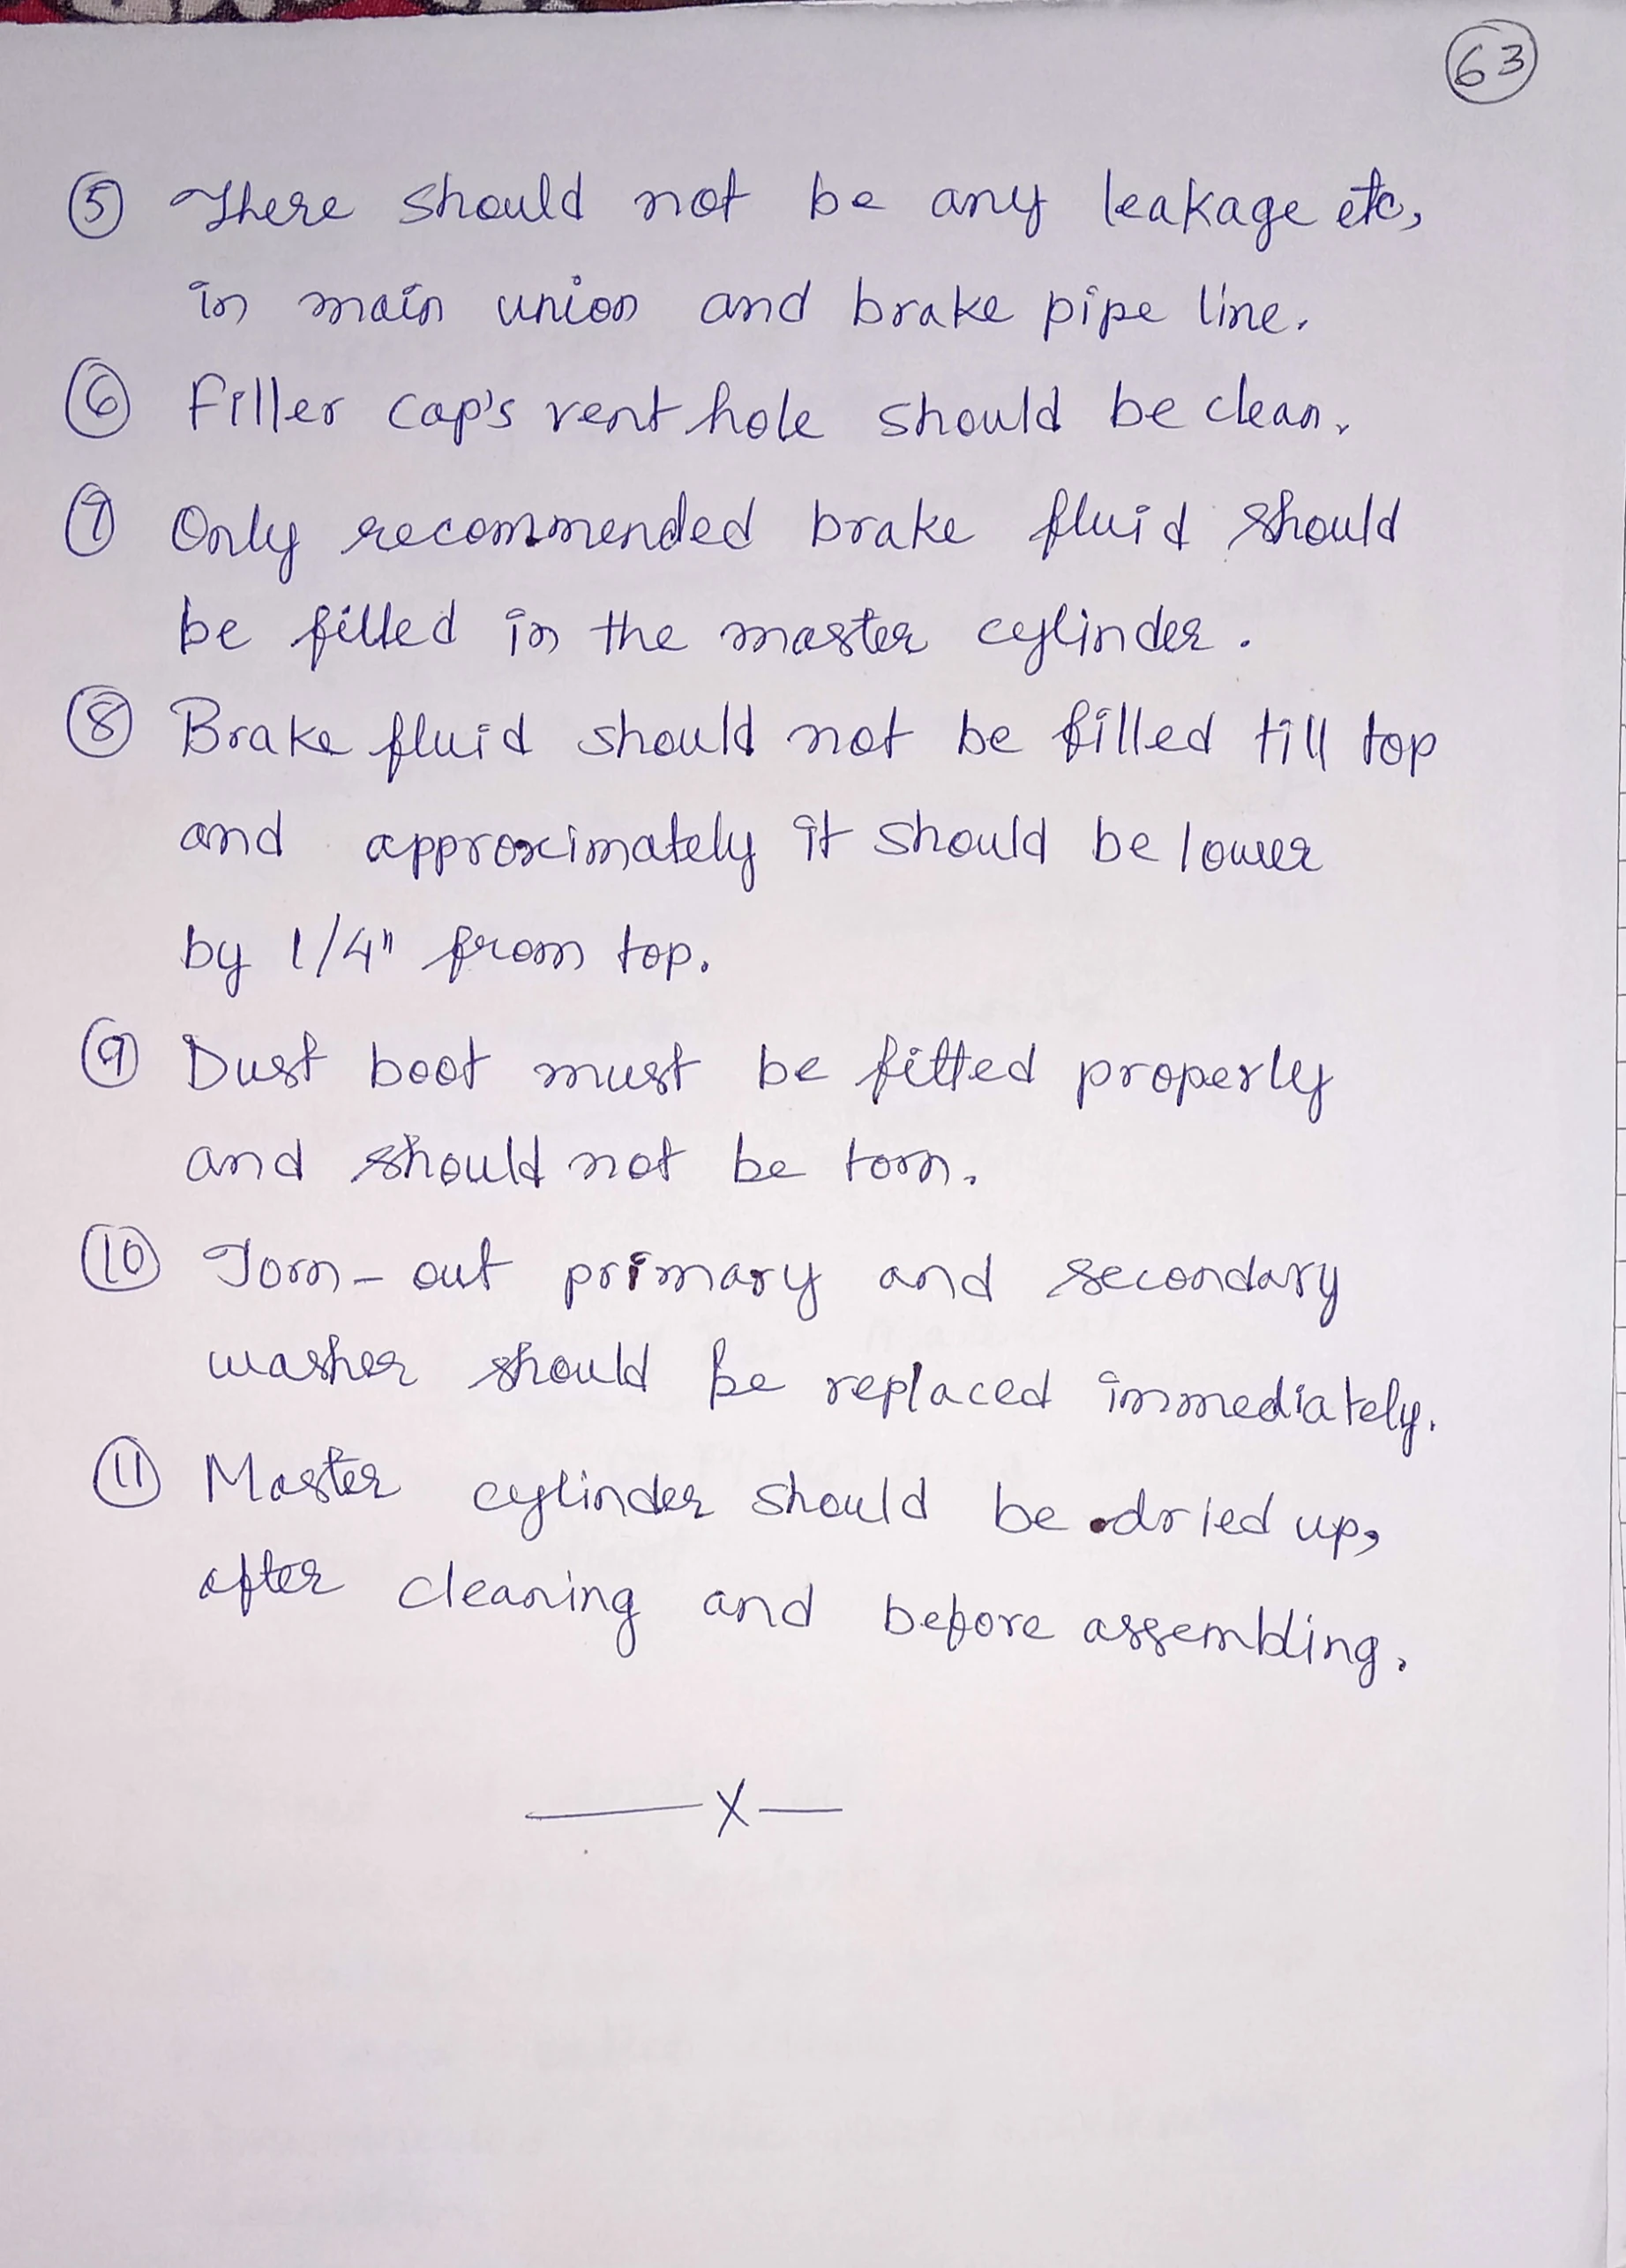 63
⑤ There should not be any leakage etc,
in main union and brake pipe line.
⑥ Filler cap's vent hole should be clean.
⑦ Only recommended brake fluid should
be filled in the master cylinder.
⑧ Brake fluid should not be filled till top
and approximately it should be lower
by 1/4" from top.
⑨ Dust boot must be fitted properly
and should not be torn.
⑩ Torn-out primary and secondary
washer should be replaced immediately.
⑪ Master cylinder should be dried up,
after cleaning and before assembling.
—x—